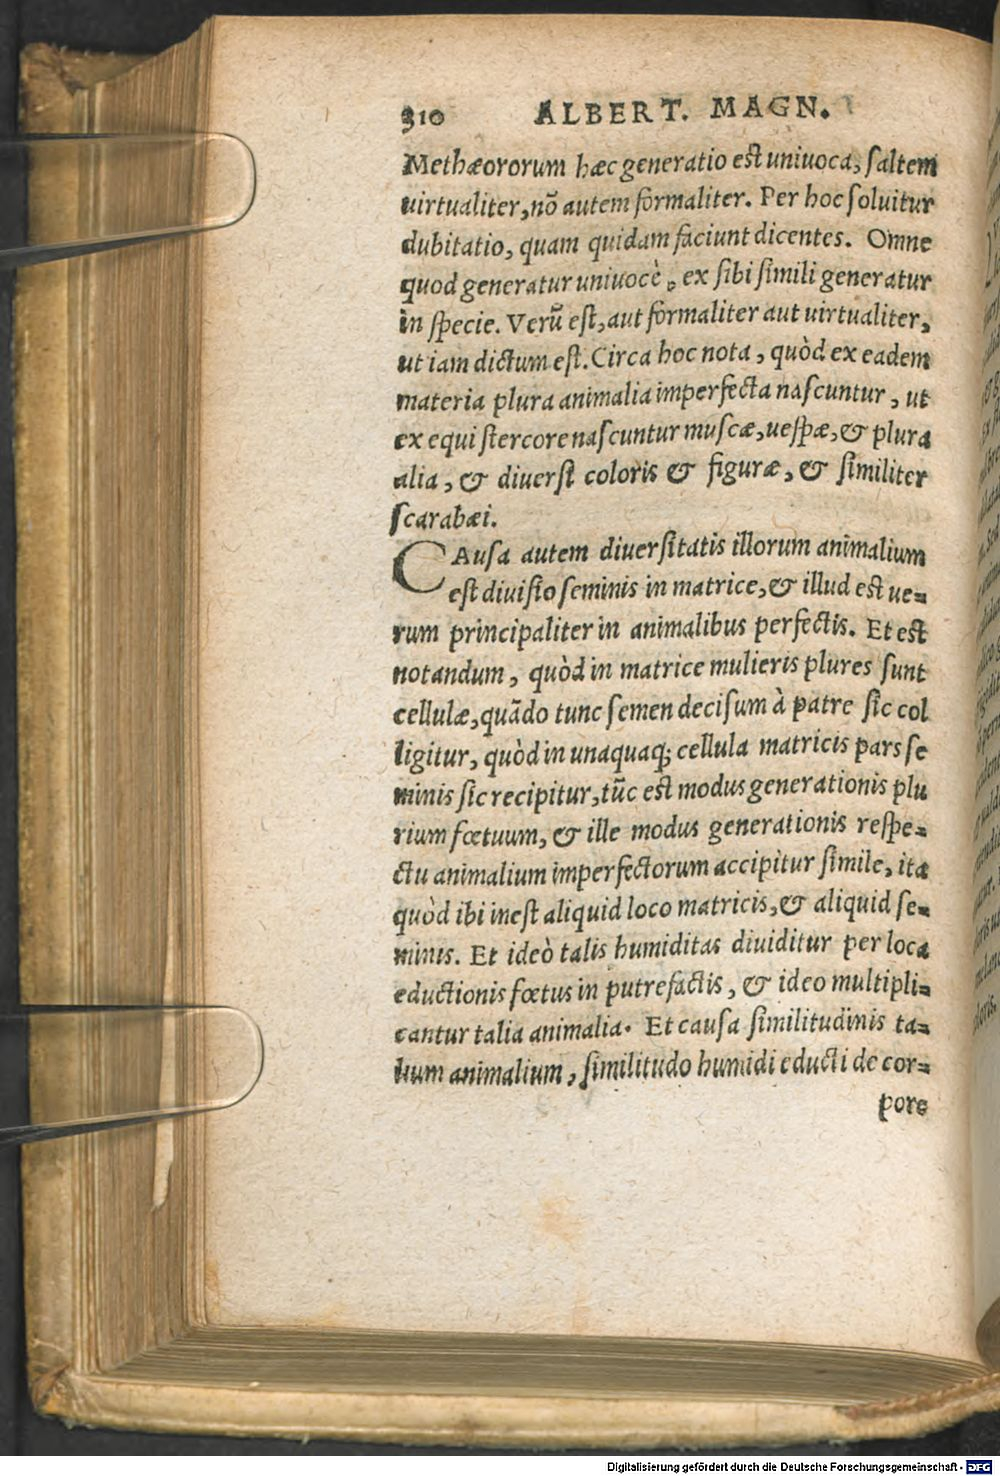 310 ALBERT. MAGN.
Methæororum hæc generatio est uniuoca, saltem
uirtualiter, nõ autem formaliter. Per hoc soluitur
dubitatio, quam quidam faciunt dicentes. Omne
quod generatur uniuocè, ex sibi simili generatur
in specie. Verũ est, aut formaliter aut uirtualiter,
ut iam dictum est. Circa hoc nota, quòd ex eadem
materia plura animalia imperfecta nascuntur, ut
ex equi stercore nascuntur muscæ, uespæ, & plura
alia, & diuersi coloris & figuræ, & similiter
scarabæi.
CAusa autem diuersitatis illorum animalium
est diuisio seminis in matrice, & illud est ue-
rum principaliter in animalibus perfectis. Et est
notandum, quòd in matrice mulieris plures sunt
cellulæ, quãdo tunc semen decisum à patre sic col
ligitur, quòd in unaquaq; cellula matricis pars se
minis sic recipitur, tũc est modus generationis plu
rium fœtuum, & ille modus generationis respe-
ctu animalium imperfectorum accipitur simile, ita
quòd ibi inest aliquid loco matricis, & aliquid se-
minis. Et ideò talis humiditas diuiditur per loca
eductionis fœtus in putrefactis, & ideo multipli-
cantur talia animalia. Et causa similitudinis ta-
lium animalium, similitudo humidi educti de cor-
pore
Digitalisierung gefördert durch die Deutsche Forschungsgemeinschaft - DFG